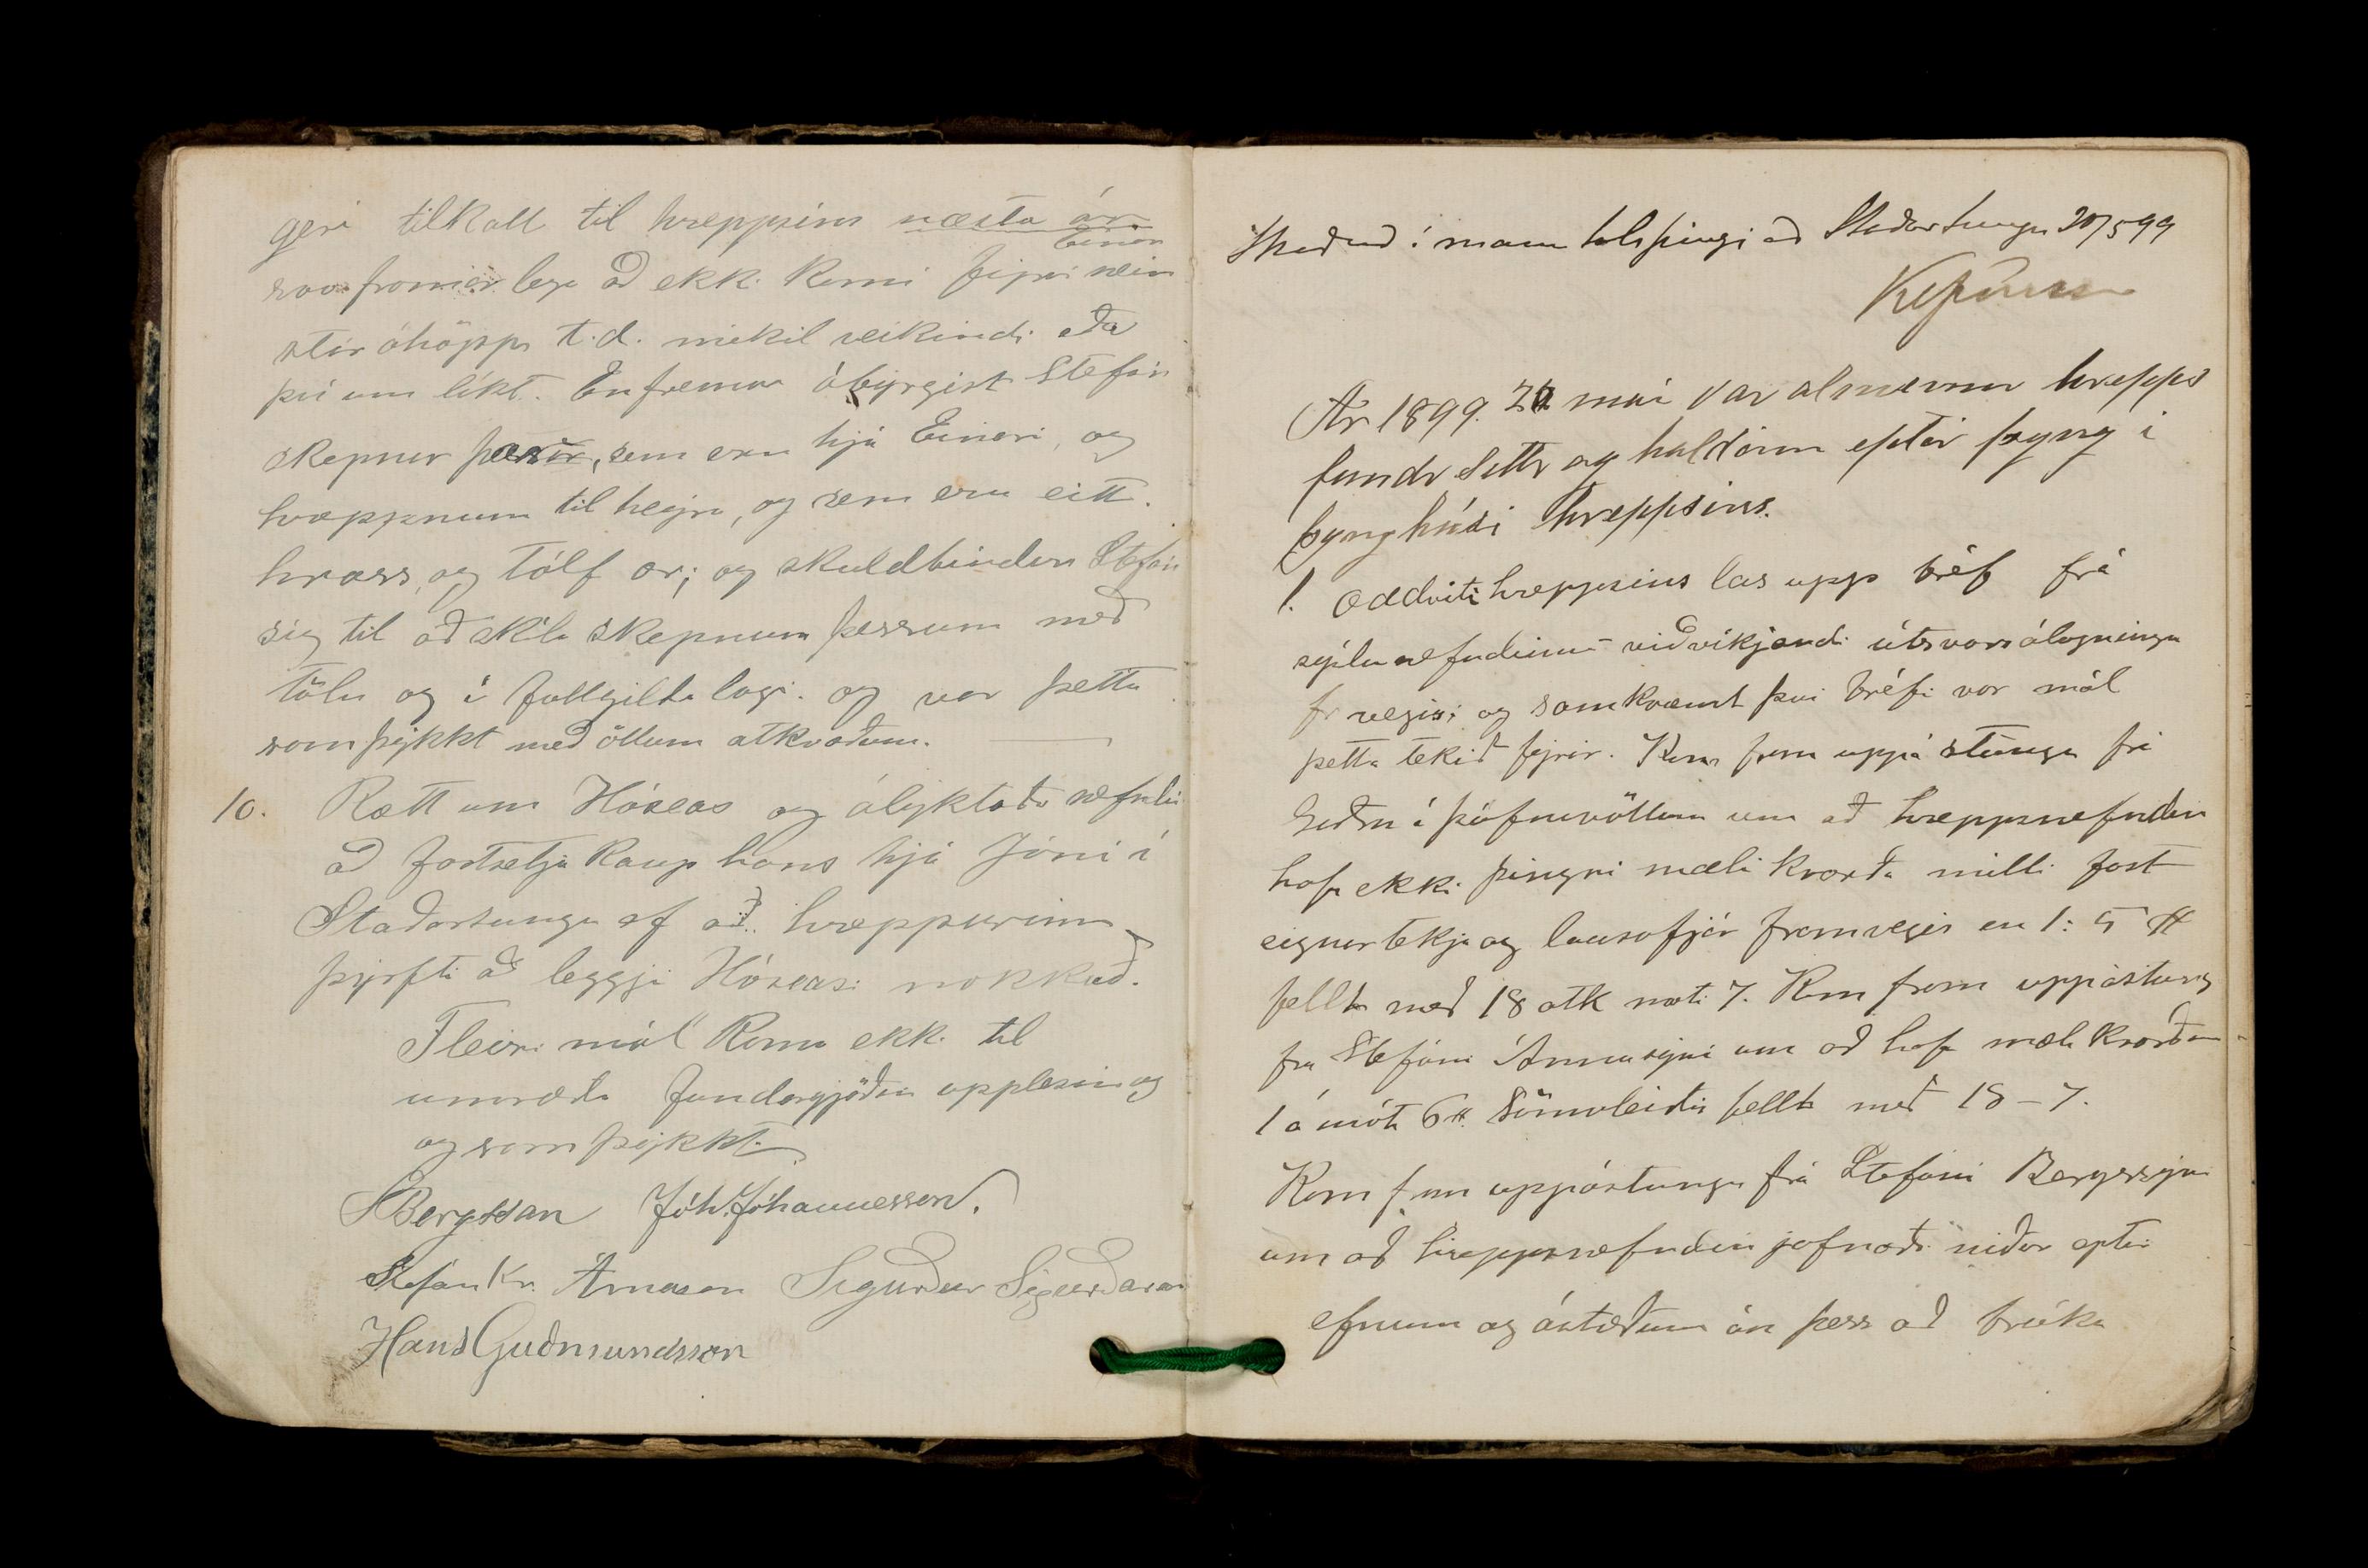 geri tilkall til hreppsins næsta ár
svo framarlega að ekki komi fyrir Einar nein
stór óhöpp t.d. mikil veikindi eða
því um líkt. Enfremur ábyrgist Stefán
skepnur þær, sem eru hjá Einari, og
hreppnum til heyra, og sem eru eitt
hross, og tólf ær; og skuldbindur Stefán
sig til að skila skepnum þessum með
tölu og í fullgildu lagi. og var þetta
samþykkt með öllum atkvæðum.
10. Rætt um Hóseas og ályktaði nefndin
að fortsetja kaup hans hjá Jóni í
Staðartungu ef að hreppurinn
þyrfti að leggja Hóseasi nokkuð.
Fleiri mál komu ekki til
umræðu fundargjörðin upplesin og
og samþykkt.
SBergsson Jóh. Jóhannesson.
Stefán Kr. Árnason Sigurður Sigurðarson
Hans Guðmundsson
Skoðuð í manntalsþingi að Staðartungu 20/5 99
Ár 1899. maí var almennur hrepps
fundr settr og haldinn eptir þyng í
þynghúsi hreppsins.
1. Oddviti hreppsins las upp bréf frá
sýslunefndinni viðvíkjandi útsvarsálagningu
og samkvæmt því bréfi var mál
þetta tekið fyrir. Kom fram uppástunga frá
á Þúfnavöllum um að hreppsnefndin
hafi ekki þingri mælikvarða milli fast
eignartekju og lausafjár framvegis en 1: 5 ff
fellt með 18 atk móti 7. Kom fram uppástung
fra Stefáni Árnasyni um að hafa mælikvarðan
1 á móti 6 ff. Sömuleiðis fellt með 18 - 7.
Kom fram uppástunga frá Stefáni Bergssyni
um að hreppsnefndin jafnaði niður eptir
efnum og ástæðum án þess að brúka